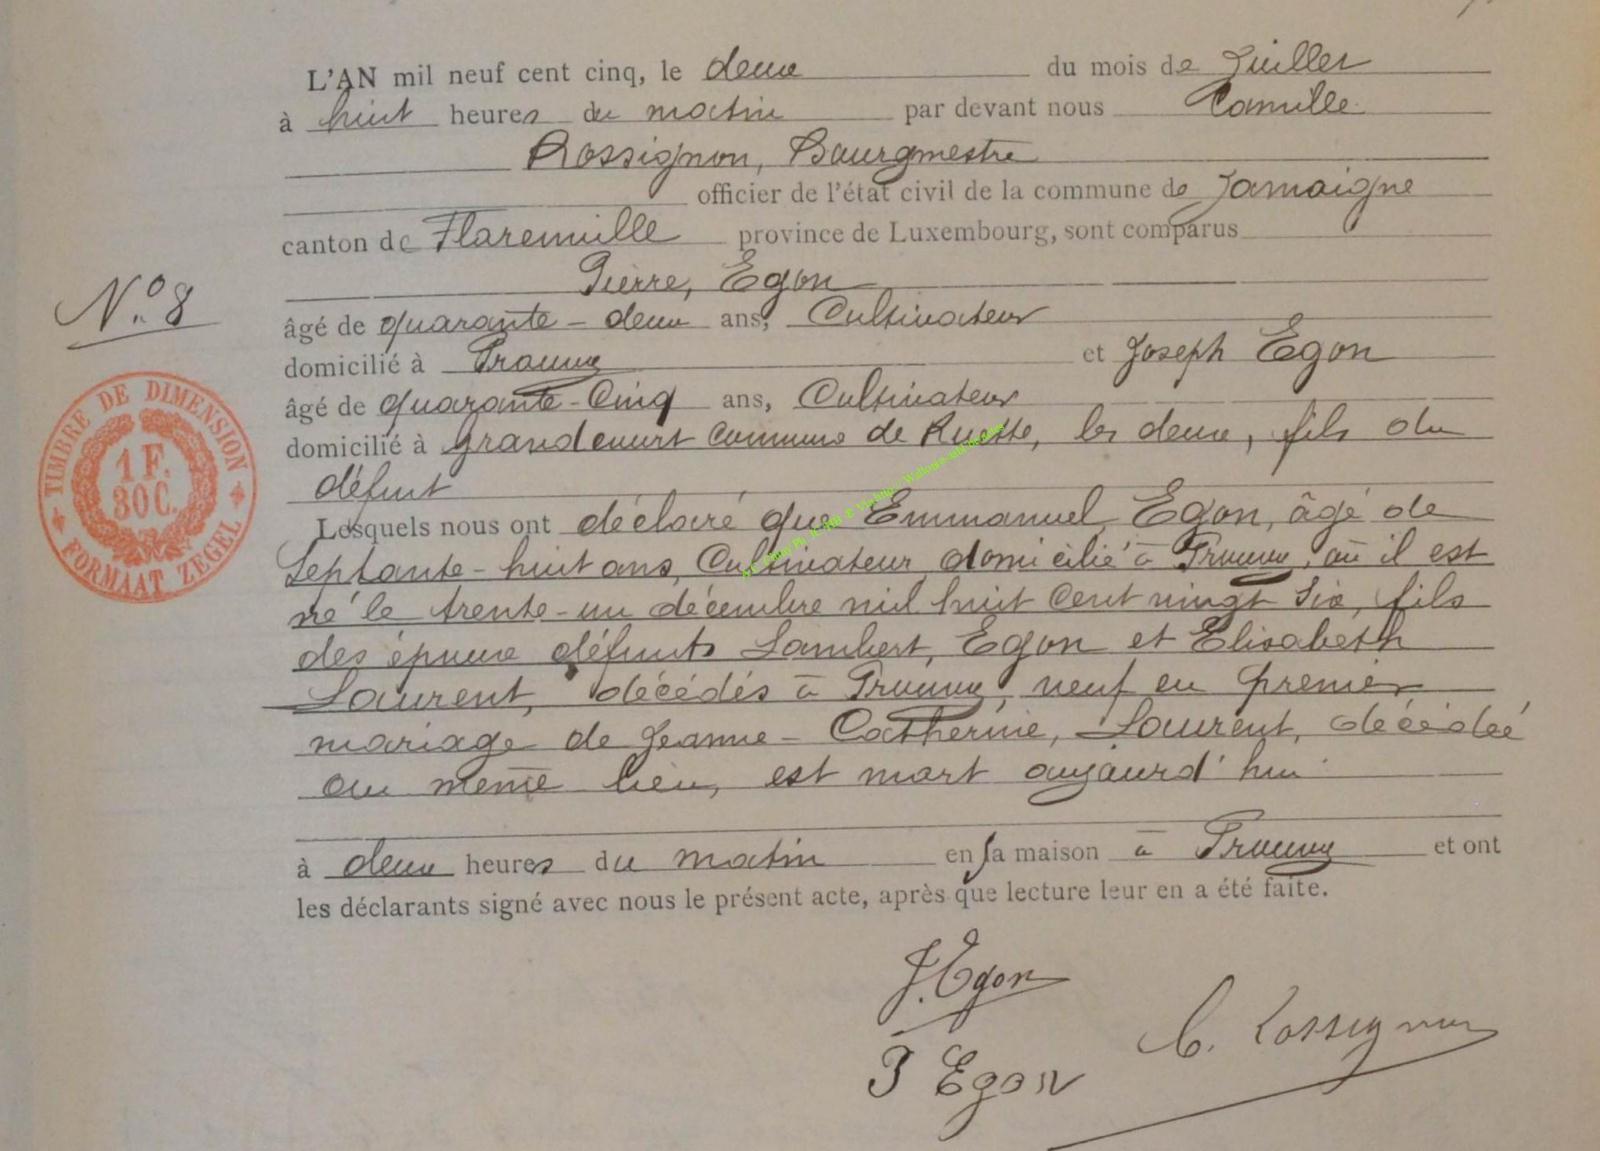 L'AN mil neuf cent cinq, le deux du mois de Juillet
à huit heures du matin par devant nous Camille
Rossignon, Bourgmestre
officier de l'état civil de la commune de Jamoigne
canton de Florenville province de Luxembourg, sont comparus
Pierre, Egon
N° 8
âgé de quarante-deux ans, Cultivateur
domicilié à Prouvy et Joseph Egon
âgé de quarante-Cinq ans, Cultivateur
domicilié à Grandcourt Commune de Ruette, les deux, fils du
défunt
Lesquels nous ont déclaré que Emmanuel Egon, âgé de
Septante-huit ans, Cultivateur domicilié à Prouvy, où il est
né le trente-un décembre mil huit Cent vingt Six, fils
des époux défunts Lambert, Egon et Elisabeth
Laurent, décédés à Prouvy, veuf en premier
mariage de Jeanne-Catherine, Laurent, décédée
au même lieu, est mort aujourd'hui
à deux heures du matin en sa maison à Prouvy et ont
les déclarants signé avec nous le présent acte, après que lecture leur en a été faite.
J. Egon
C. Rossignon
P Egon
TIMBRE DE DIMENSION
1 F.
30 C.
FORMAAT ZEGEL